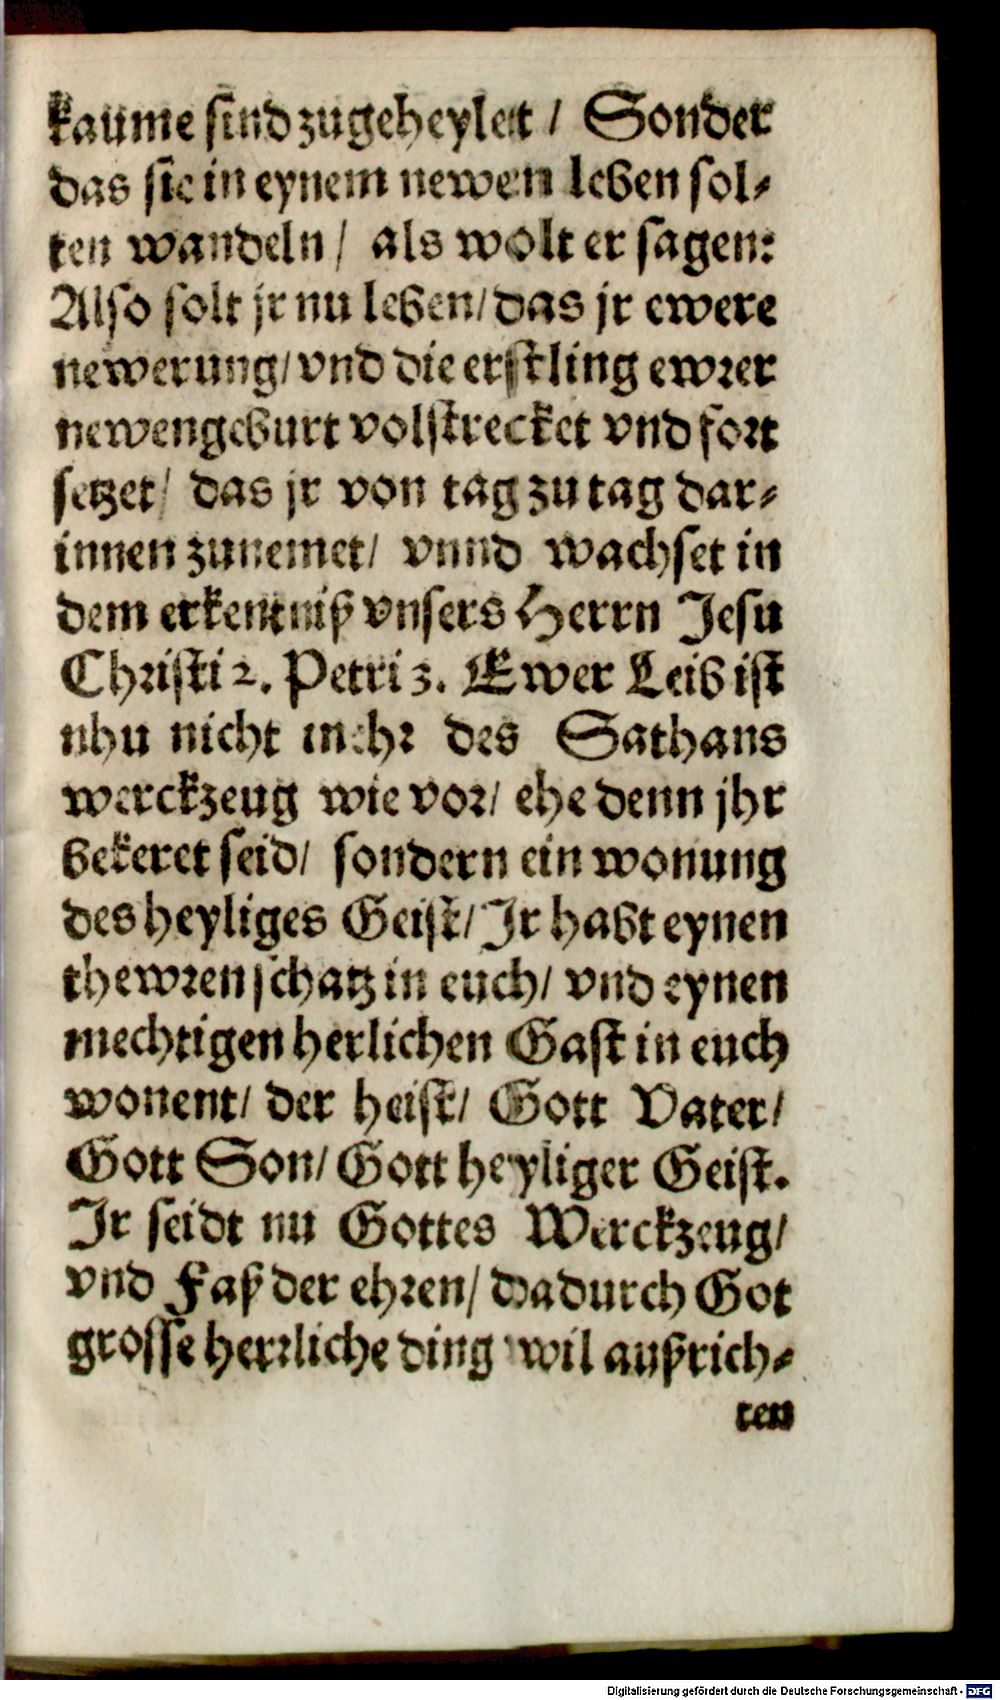 kaume sind zugeheylet / Sonder
das sie in eynem newen leben sol⸗
ten wandeln / als wolt er sagen:
Also solt jr nu leben / das jr ewere
newerung / vnd die erstling ewrer
newengeburt volstrecket vnd fort
setzet / das jr von tag zu tag dar⸗
innen zunemet / vnnd wachset in
dem erkentniß vnsers Herrn Jesu
Christi 2. Petri 3. Ewer Leib ist
nhu nicht mehr des Sathans
werckzeug wie vor / ehe denn jhr
bekeret seid / sondern ein wonung
des heyliges Geist / Jr habt eynen
thewren schatz in euch / vnd eynen
mechtigen herlichen Gast in euch
wonent / der heist / Gott Vater /
Gott Son / Gott heyliger Geist.
Jr seidt nu Gottes Werckzeug /
vnd Faß der ehren / dadurch Got
grosse herrliche ding wil außrich⸗
ten
Digitalisierung gefördert durch die Deutsche Forschungsgemeinschaft - DFG